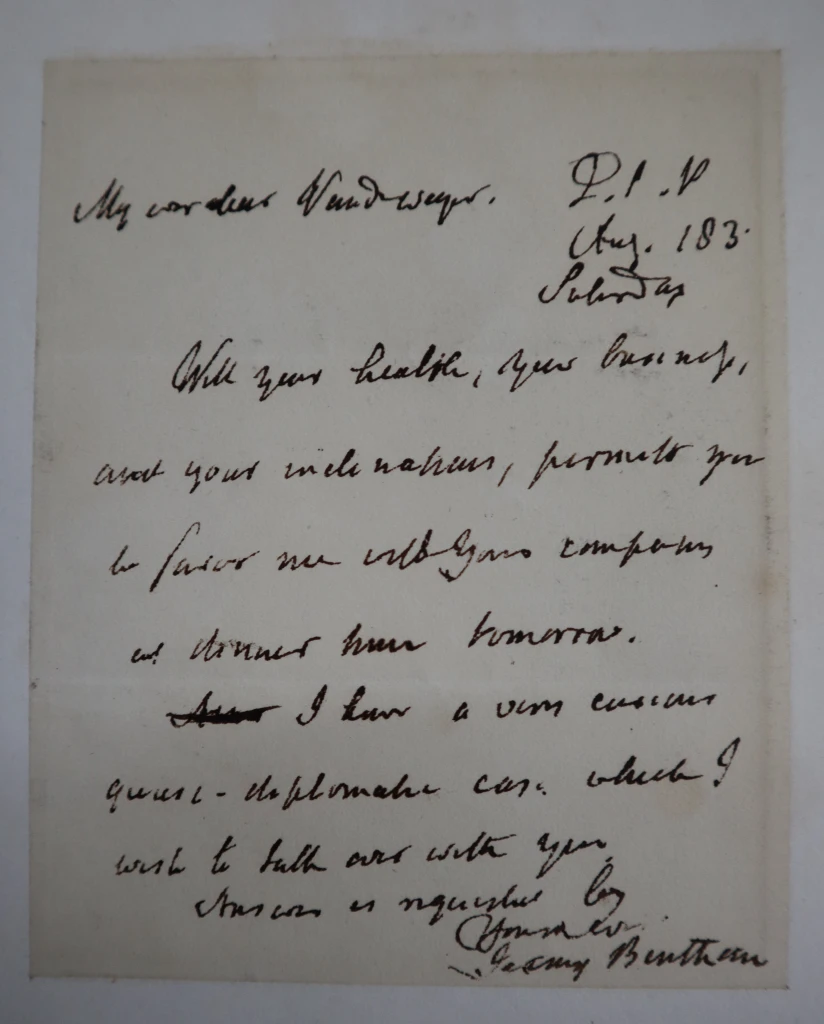 My ever dear Vandeweyer.
Q.S.P
Aug. 183
Saturday
Will your health, your business,
and your inclinations, permitt you
to favor me with your company
at dinner here tomorrow.
I have a very curious
quasi-diplomatic case which I
wish to talk over with you.
Answer is requested by
Yours ever
Jeremy Bentham